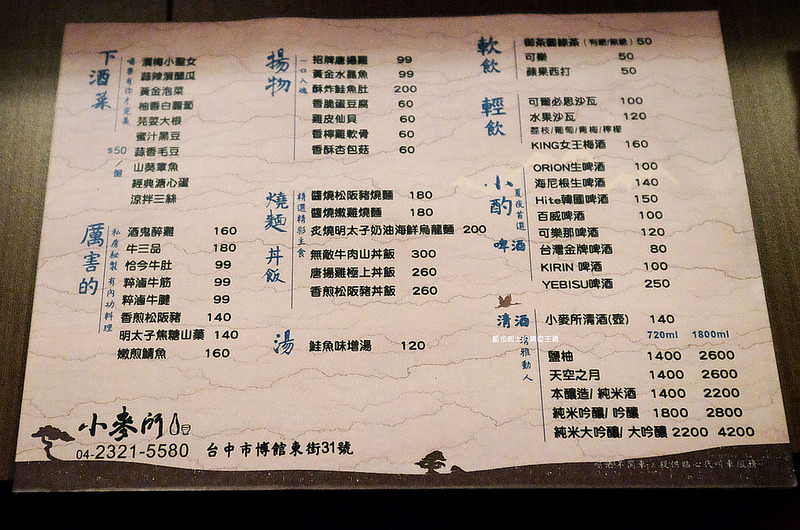 下酒菜
喝醬有你才完美
$50／盤
漬梅小聖女
蒜辣漬醋瓜
黃金泡菜
柚香白蘿蔔
芫荽大根
蜜汁黑豆
蒜香毛豆
山葵章魚
經典溏心蛋
涼拌三絲
厲害的
私房秘製 有內功料理
酒鬼醉雞 160
牛三品 180
恰今牛肚 99
粹滷牛筋 99
粹滷牛腱 99
香煎松阪豬 140
明太子焦糖山藥 140
嫩煎鯖魚 160
揚物
一口入魂
招牌唐揚雞 99
黃金水晶魚 99
酥炸鮭魚肚 200
香脆蛋豆腐 60
雞皮仙貝 60
香檸雞軟骨 60
香酥杏包菇 60
燒麵 丼飯
精選精彩主食
醬燒松阪豬燒麵 180
醬燒嫩雞燒麵 180
炙燒明太子奶油海鮮烏龍麵 200
無敵牛肉山丼飯 300
唐揚雞極上丼飯 260
香煎松阪豬丼飯 260
湯
鮭魚味增湯 120
軟飲
御茶園綠茶（有糖/無糖）50
可樂 50
蘋果西打 50
輕飲
可爾必思沙瓦 100
水果沙瓦 120
荔枝/葡萄/青梅/檸檬
KING女王梅酒 160
小酌 啤酒
夏夜首選
ORION生啤酒 100
海尼根生啤酒 140
Hite韓國啤酒 150
百威啤酒 100
可樂那啤酒 120
台灣金牌啤酒 80
KIRIN 啤酒 100
YEBISU啤酒 250
清酒
清雅動人
小麥所清酒(壺) 140
720ml 1800ml
鹽柚 1400 2600
天空之月 1400 2600
本釀造/ 純米酒 1400 2200
純米吟釀/ 吟釀 1800 2800
純米大吟釀/ 大吟釀 2200 4200
小麥所
04-2321-5580 台中市博館東街31號